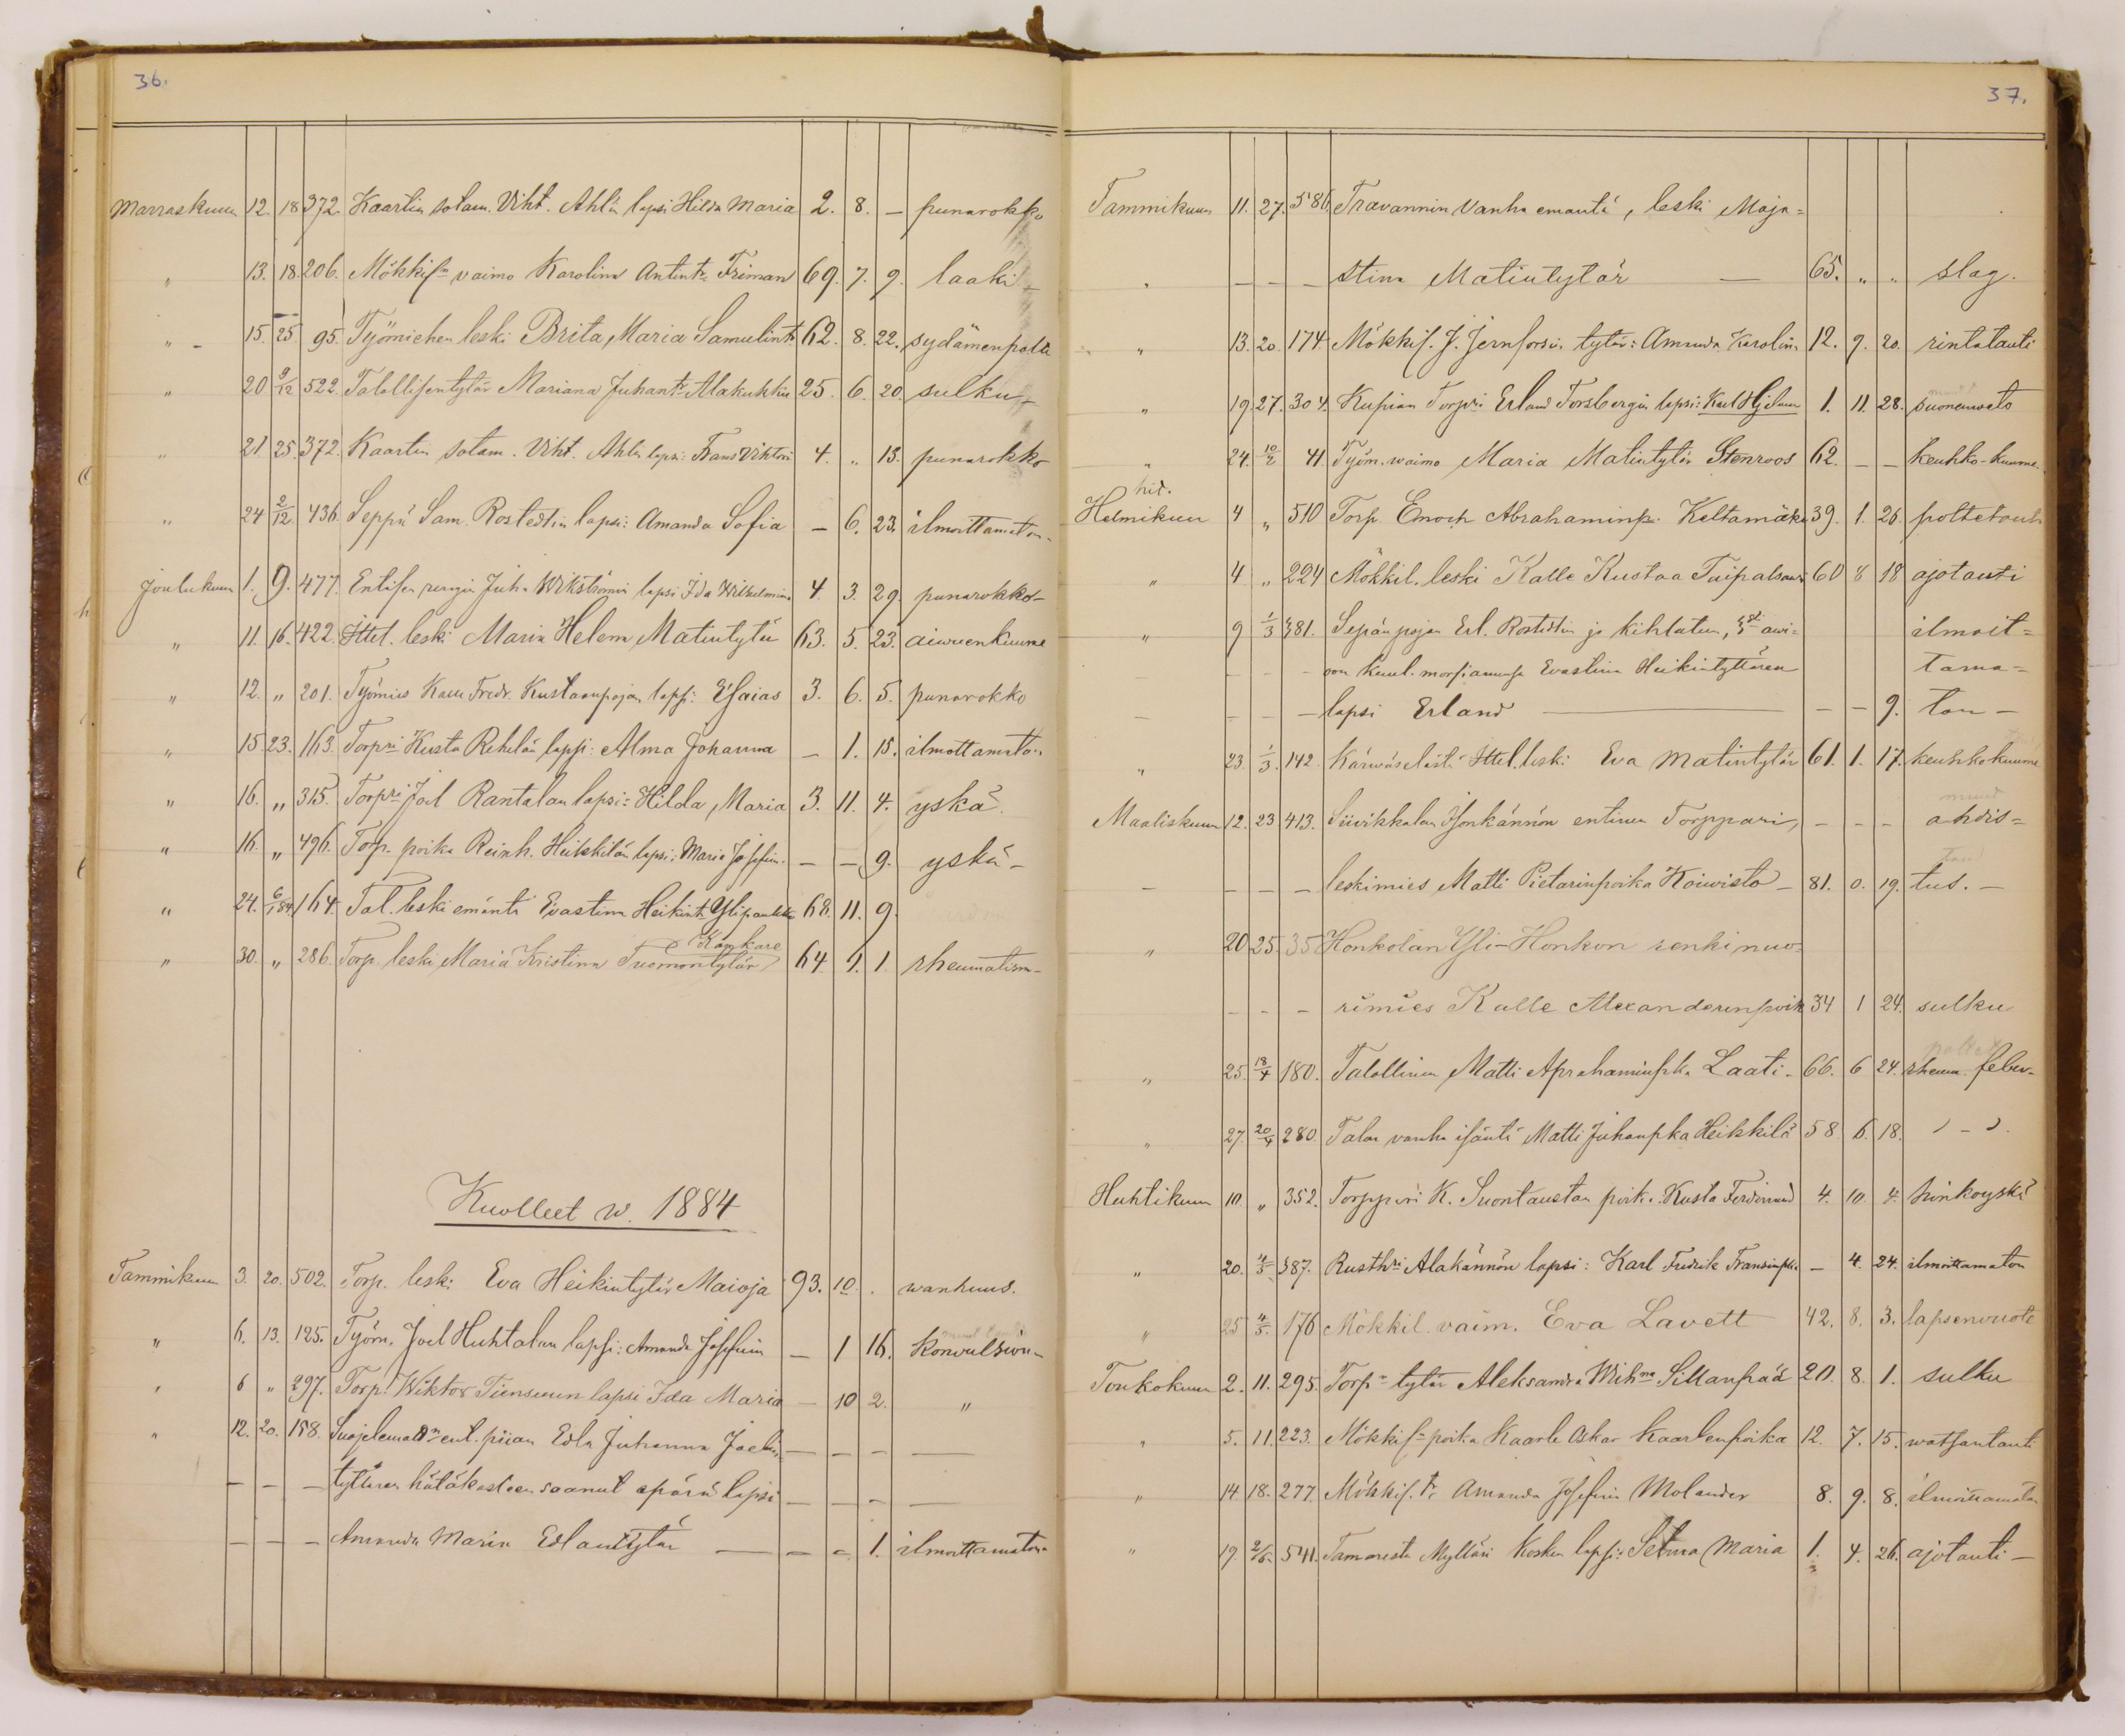 36.
Marraskuun 12. 18 372. Kaartin sotam. Viht. Ahlin lapsi Hilda Maria 2. 8. — punarokko
" 13. 18. 206. Mökkis:n vaimo Karolina Antint:r Friman 69. 7. 9. laaki —
" 15. 25. 95. Työmiehen leski Brita Maria Samulint:r 62. 8. 22. sydämenpolte
" 20 9/12 522. Talollisentytär Mariana Juhant:r Alakuhku 25. 6. 20. sulku —
" 21 25. 372. Kaartin sotam. Viht. Ahlin lapsi: Frans Viktori 4. " 13. punarokko
" 24 2/12 436. Seppä Sam. Rostedtin lapsi: Amanda Sofia — 6. 23. ilmoittamaton
Joulukuun 1. 9. 477. Entisen rengin Juha Wikströmin lapsi Ida Wilhelmina 4. 3. 29. punarokko
" 11. 16. 422. Ittel. leski Maria Helena Matintytär 63. 5. 23. aiwuenkuume
" 12. " 201. Työmies Fredr. Kustaanpojan lapsi: Esaias 3. 6. 5. punarokko
" 15. 23. 163. Torpri Kusta Rehelän lapsi: Alma Johanna — 1. 15. ilmottamaton
" 16. " 315. Torpri Joel Rantalan lapsi: Hilda, Maria 3. 11. 4. yskä.
" 16. " 496. Torp. poika Reinh. Heikkilän lapsi: Maria Josefin. — — 9. yskä —
" 24. 6/1 84. 164. Tal. leski emäntä Evastina Heikint:r 68. 11. 9.
Kankare
" 30. " 286. Torp. leski Maria Kristina Tuomontytär 64 9. 1. rheumatism —
Kuolleet w. 1884
Tammikuu 3. 20. 502. Torp. leski Eva Heikintytär Maioja 93. 10. . wanhuus.
" 6. 13. 125. Työm. Joel Huhtalan lapsi: Amanda Josefiin — 1 16. Konvulsion —
" 6 " 297. Torp. Wiktor Tiensuun lapsi Ida Maria — 10 2. "
" 12. 20. 158. ent. piian Edla Juhanna Joelin — — — —
— — — tyttären hätäkasteen saanut äpärä lapsi — — — —
— — — Amanda Maria Edlantytär — — — 1. ilmoittamaton
37.
Tammikuun 11. 27. 586. Travannin Vanha emäntä, leski Maja=
" — — — stina Matintytär — 65. " " slag.
" 13. 20. 174 Mökkis. J. Jernforsin tytär: Amanda Karolin. 12. 9. 20. rintatauti
" 19. 27. 304. Kupian Torpri Erland Forsbergin lapsi: Karl Hjelmar 1. 11. 28. suonenweto
" 24. 10/2 41 Työm. waimo Maria Matintytär Stenroos 62. — — keuhko-kuume.
Helmikuun 4 " 510 Torp. Enoch Abrahaminp. Keltamäki 39. 1. 26. poltetauti
" 4 " 224 Mökkil. leski Kalle Kustaa Taipalsaari 60 8 18 ajotauti
" 9 1/3 381. Sepän pojan Erl. Rostedtin ja kihlatun, awi= ilmoit=
— — — — oon kuul. morsiamensa Evastina Heikintyttären tama=
— — — — lapsi Erland — — — 9. ton —
" 23. 1/3. 142. Ittel. leski Eva Matintytär 61. 1. 17. keuhkokuume
Maaliskuun 12. 23 413. Siivikkalan Isonkännön entinen Torppari, — — — ahdis=
— — — — leskimies Matti Pietarinpoika Koiwisto — 81. 0. 19. tus. —
" 20 25. 35 Honkolan Yli-Honkon renki nuo=
— — — rimies Kalle Alexanderinpoik 34 1 24. sulku
" 25. 18/4 180. Talollinen Matti Aprahaminpka Laati — 66. 6 24. rheum. feber —
" 27. 20/4 280. Talon vanha isäntä Matti Juhanpka Heikkilä 58 6. 18. " - "
Huhtikuun 10. " 352. Torppari K. Suontaustan poika Kusta Ferdinand 4. 10. 4. hinkuyskä
" 20. 4/5 387. Rusthri Alakännön lapsi: Karl Fredrik Fransinpka — 4. 24. ilmoittamaton
" 25 4/5. 176 Mökkil. vaim. Eva Lavett 42. 8. 3. lapsenvuote
Toukokuun 2. 11. 295. Torp:n tytär Aleksandra Wilh:na Sillanpää 20. 8. 1. sulku
" 5. 11. 223. Mökkis:n poika Kaarle Oskar Kaarlenpoika 12. 7. 15. watsantauti
" 14 18. 277. Mökkis. t:r Amanda Josefiin Molander 8. 9. 8. ilmoittamaton
" 19. 2/6. 541. Tamareista Mylläri Kosken lapsi: Selma Maria 1. 4. 26. ajotauti —